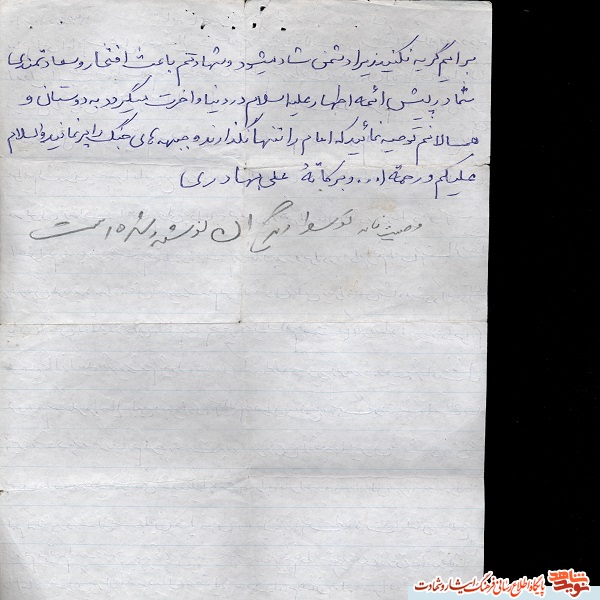 برایم گریه نکنید زیرا دشمن شاد میشود و شهادتم باعث افتخار و سعادتمندی
شما در پیش ائمه اطهار علیه السلام در دنیا و اخرت میگردد به دوستان و
همسالانم توصیه نمائید که امام را تنها نگذارند و جبهه های جنگ را پر نمائید والسلام
علیکم و رحمة ا... و برکاتهُ علی بهادری
وصیتنامه توسط دیگران نوشته شده است
نوید شاهد
پایگاه اطلاع رسانی فرهنگ ایثار و شهادت